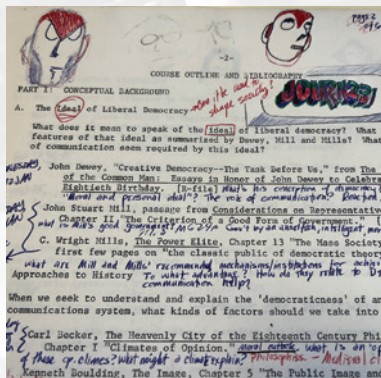 Page 2
-2-
COURSE OUTLINE AND BIBLIOGRAPHY
PART I: CONCEPTUAL BACKGROUND
how is it used to shape society?
A. The Ideal of Liberal Democracy
What does it mean to speak of the ideal of liberal democracy? What
features of that ideal as summarized by Dewey, Mill and Mills? What
of communication seem required by this ideal?
John Dewey, "Creative Democracy--The Task Before Us," from The
of the Common Man: Essays in Honor of John Dewey to Celebra
Eightieth Birthday. [R-file] What's his conception of democracy
"moral and personal ideal"? The role of communication?
John Stuart Mill, passage from Considerations on Representative
Chapter II "The Criterion of a Good Form of Government."
what is Mill's good government?
C. Wright Mills, The Power Elite, Chapter 13 "The Mass Society
first few pages on "the classic public of democratic theory
what are Mill and Mills' recommended mechanisms/institutions for
Approaches to History To what advantage? How do they relate to
communication help?
When we seek to understand and explain the 'democraticness' of an
communications system, what kinds of factors should we take into
Carl Becker, The Heavenly City of the Eighteenth Century Phi
Chapter I "Climates of Opinion." what is an
of these op. climes? what might a clime explain? Philosophiss. - Medieval
Kenneth Boulding, The Image, Chapter 5 "The Public Image and